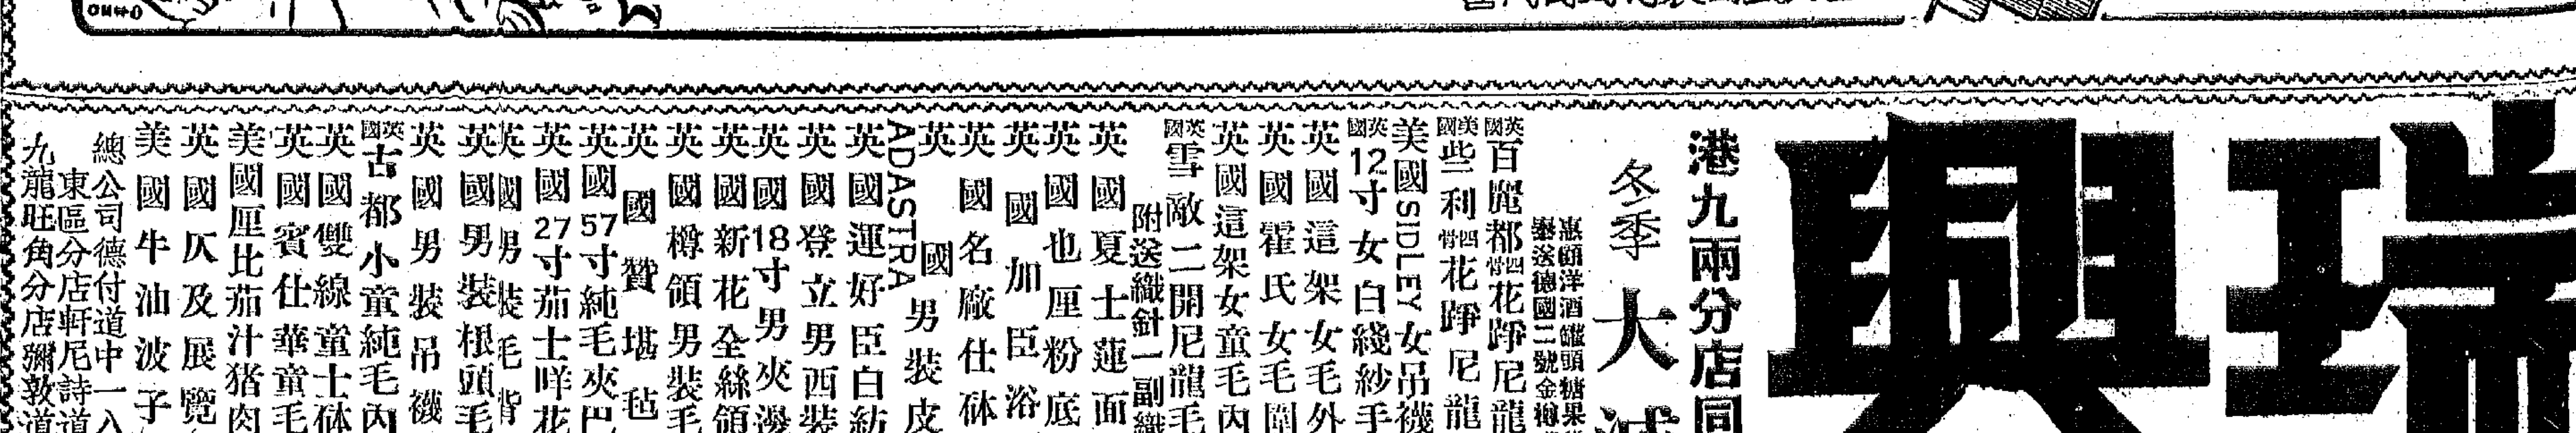 瑞興
港九兩分店同
冬季大減
惠顧洋酒罐頭糖果
舉送德國二號金樽
英國百麗都四骨花踭尼龍
美國些利四骨花踭尼龍
美國SIDLEY女吊襪
英國12寸女白綫紗手
英國這架女毛外
英國霍氏女毛圍
英國這架女童毛內
英國雪敵二開尼龍毛
附送織針一副織
英國夏士蓮面
英國也厘粉底
英國加臣浴
英國名廠仕砵
英國ADASTRA男裝皮
英國運好臣白紡
英國登立男西裝
英國18寸男夾邊
英國新花全絲領
英國樽領男裝毛
英國贊堪毡
英國57寸純毛夾巴
英國27寸茄士咩花
英國男裝毛背
英國男裝根頭毛
英國男裝吊襪
英國古都小童純毛內
英國雙線童士砵
英國賓仕華童毛
美國厘比茄汁猪肉
英國仄及展覽
美國牛油波子
總公司德付道中一八
東區分店軒尼詩道
九龍旺角分店彌敦道